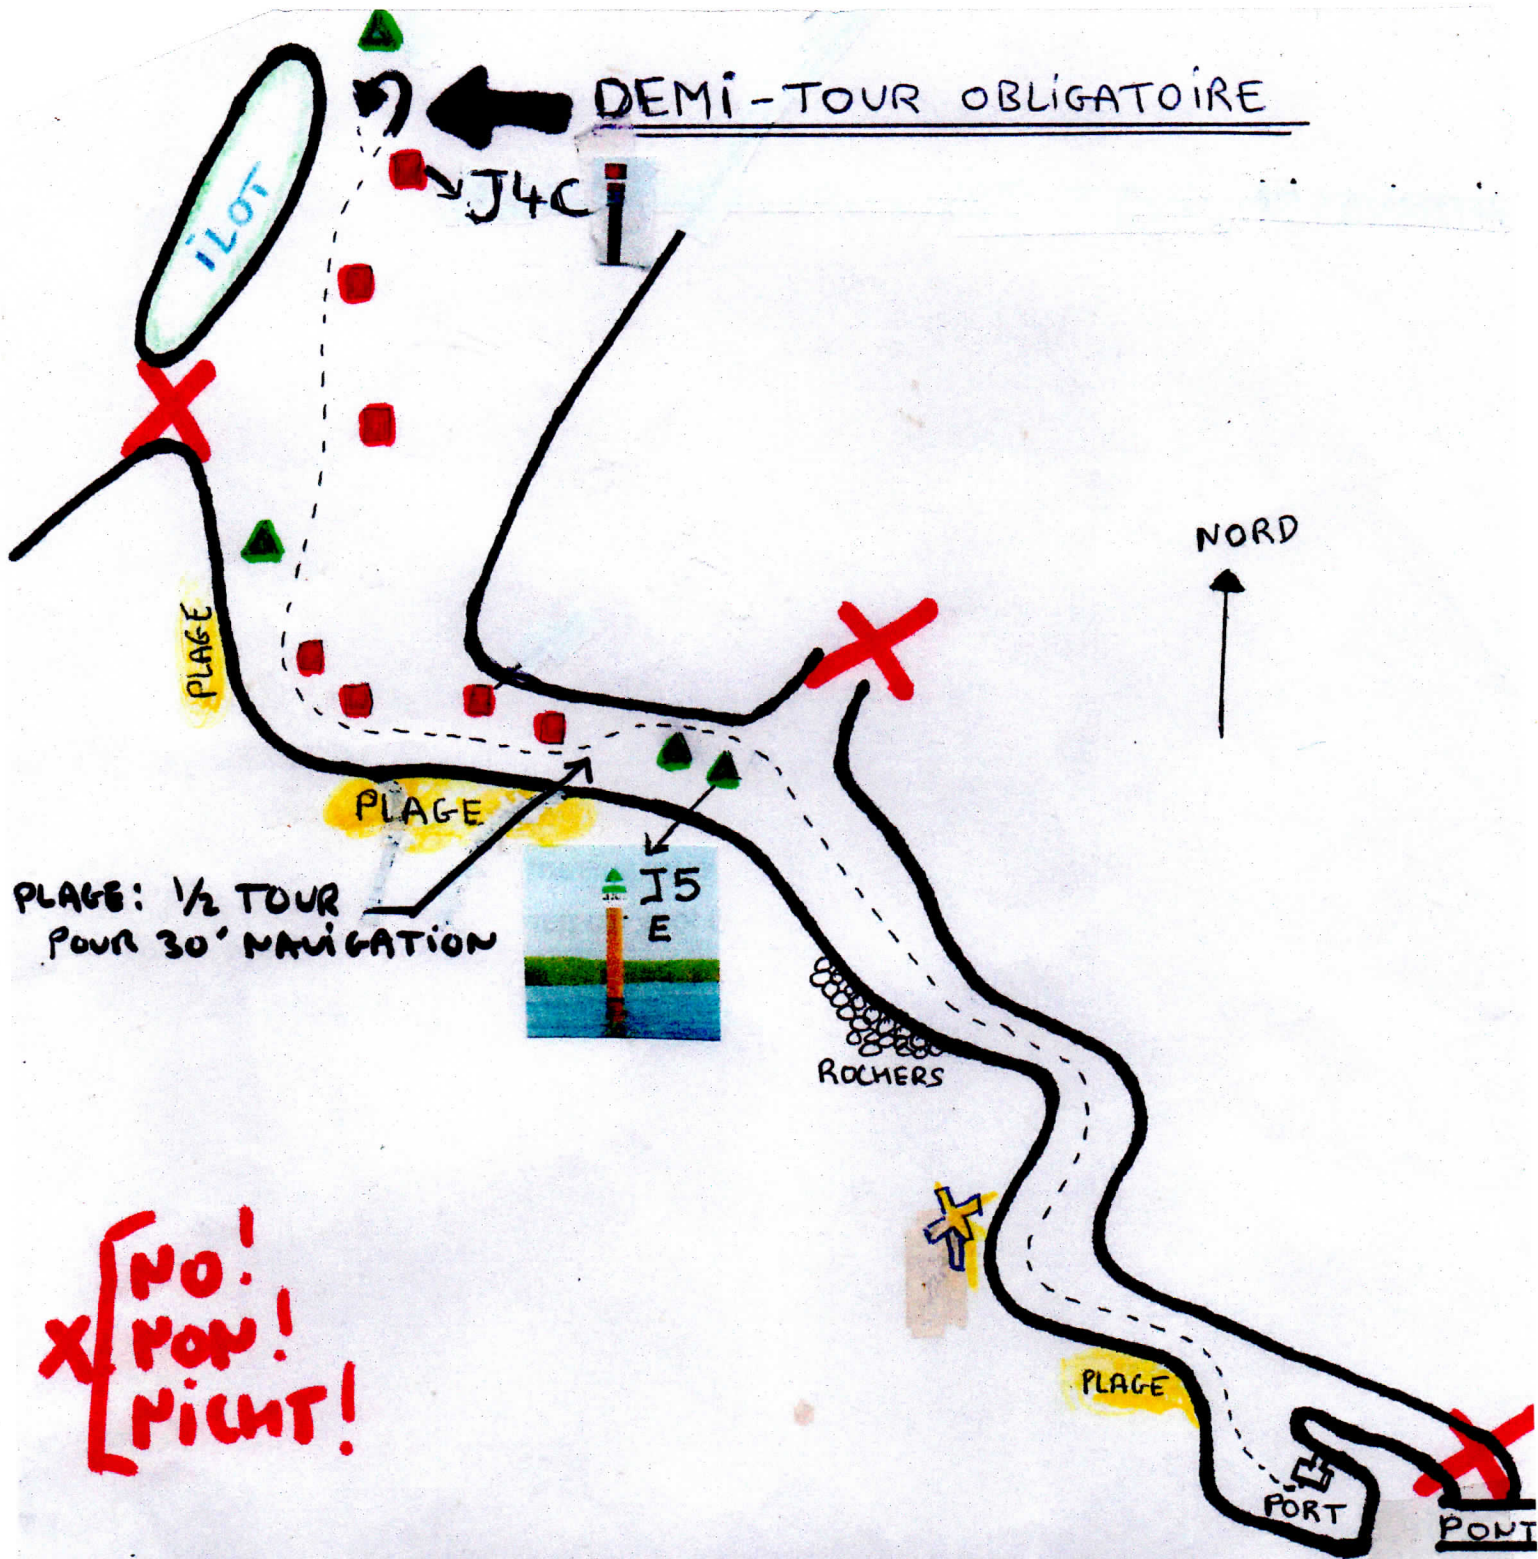 DEMI-TOUR OBLIGATOIRE
J4C
ILOT
NORD
PLAGE
PLAGE
PLAGE: 1/2 TOUR
POUR 30' NAVIGATION
J5
E
ROCHERS
NO!
NON!
NICHT!
X
PLAGE
PORT
PONT